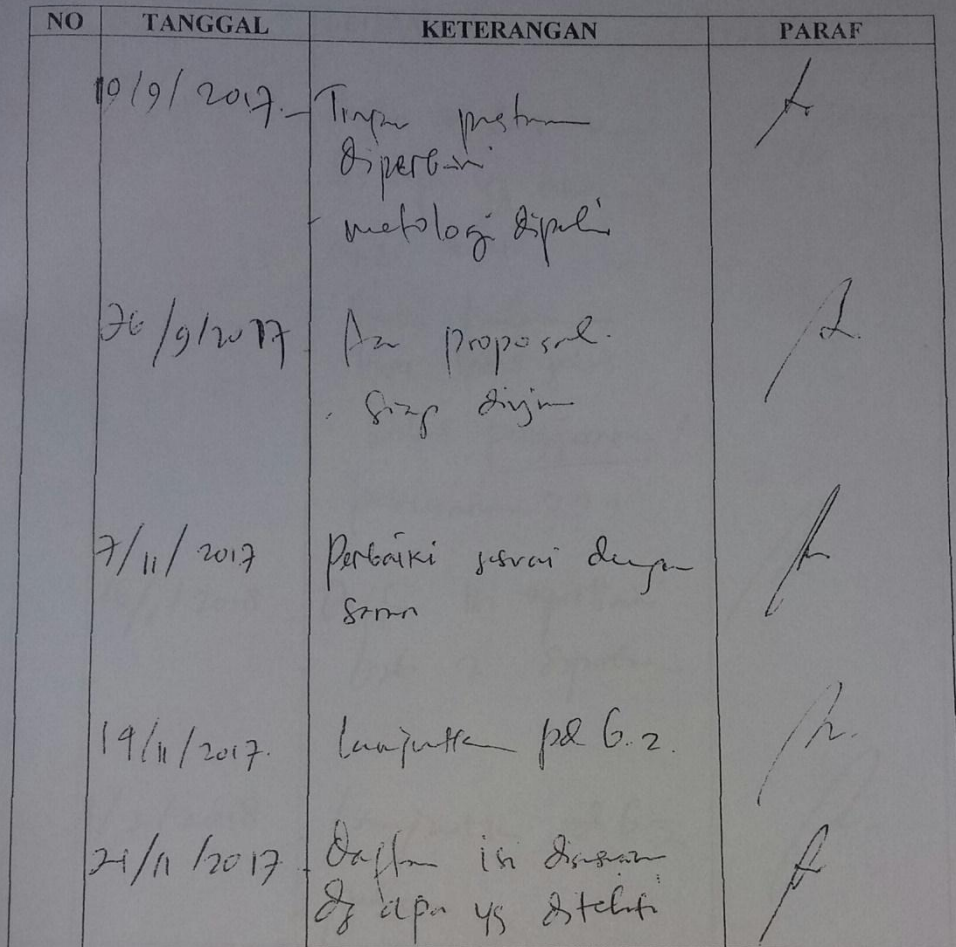 NO TANGGAL KETERANGAN PARAF
19/9/2017 - Tinjau pustaka
diperbaiki
- metologi
26/9/2017 Acc proposal.
siap diuji
7/11/2017 Perbaiki sesuai dengan
saran
19/11/2017. Lanjutkan pd G. 2.
21/11/2017 Daftar isi disesuaikan
dg apa yg diteliti